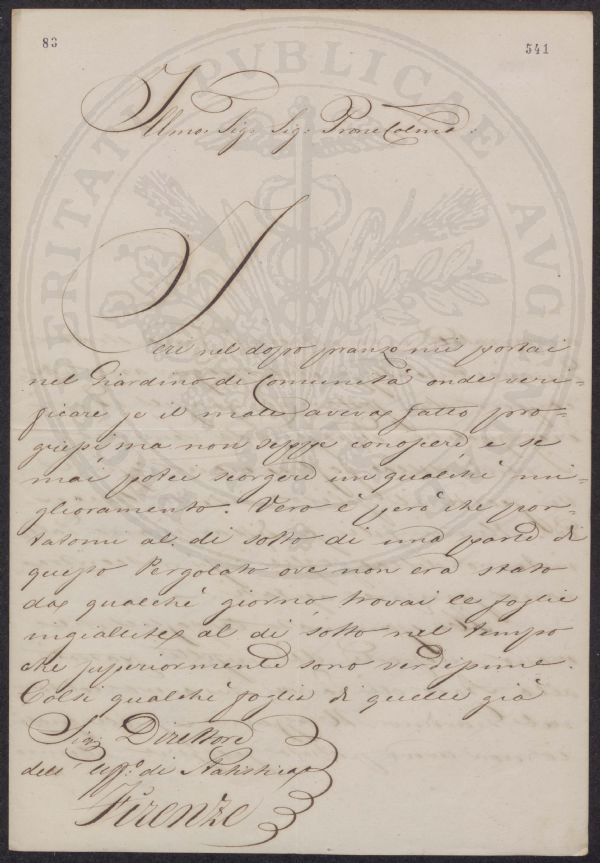 83
541
Illmo. Sig. Sig. Prone Colmo.
Ieri nel dopo pranzo mi portai
nel Giardino di Comunità onde veri-
ficare se il male aveva fatto pro-
gressi ma non seppi conoscere e se
mai potei scorgere un qualche mi-
glioramento. Vero è però che por-
tatomi al di sotto di una parte di
questo Pergolato ove non era stato
da qualche giorno, trovai le foglie
ingiallite al di sotto nel tempo
che superiormente sono verdissime.
Colsi qualche foglia di quelle già
Sig. Direttore
dell' Uffo. di Statistica
Firenze
PROSPERITATI PVBLICAE AVGENDAE